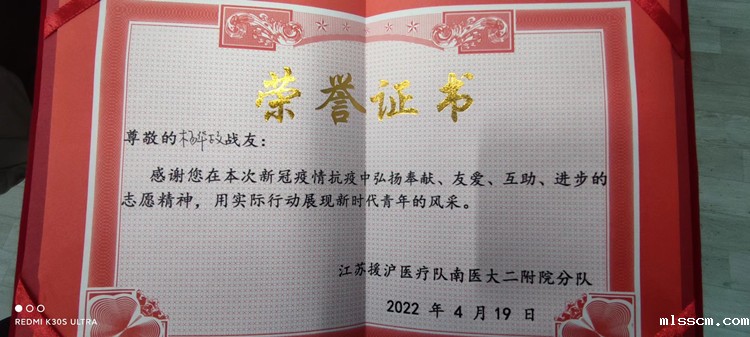 荣誉证书
尊敬的杨华玟战友：
感谢您在本次新冠疫情抗疫中弘扬奉献、友爱、互助、进步的
志愿精神，用实际行动展现新时代青年的风采。
江苏援沪医疗队南医大二附院分队
2022 年 4 月 19 日
REDMI K30S ULTRA
mlsscm.com